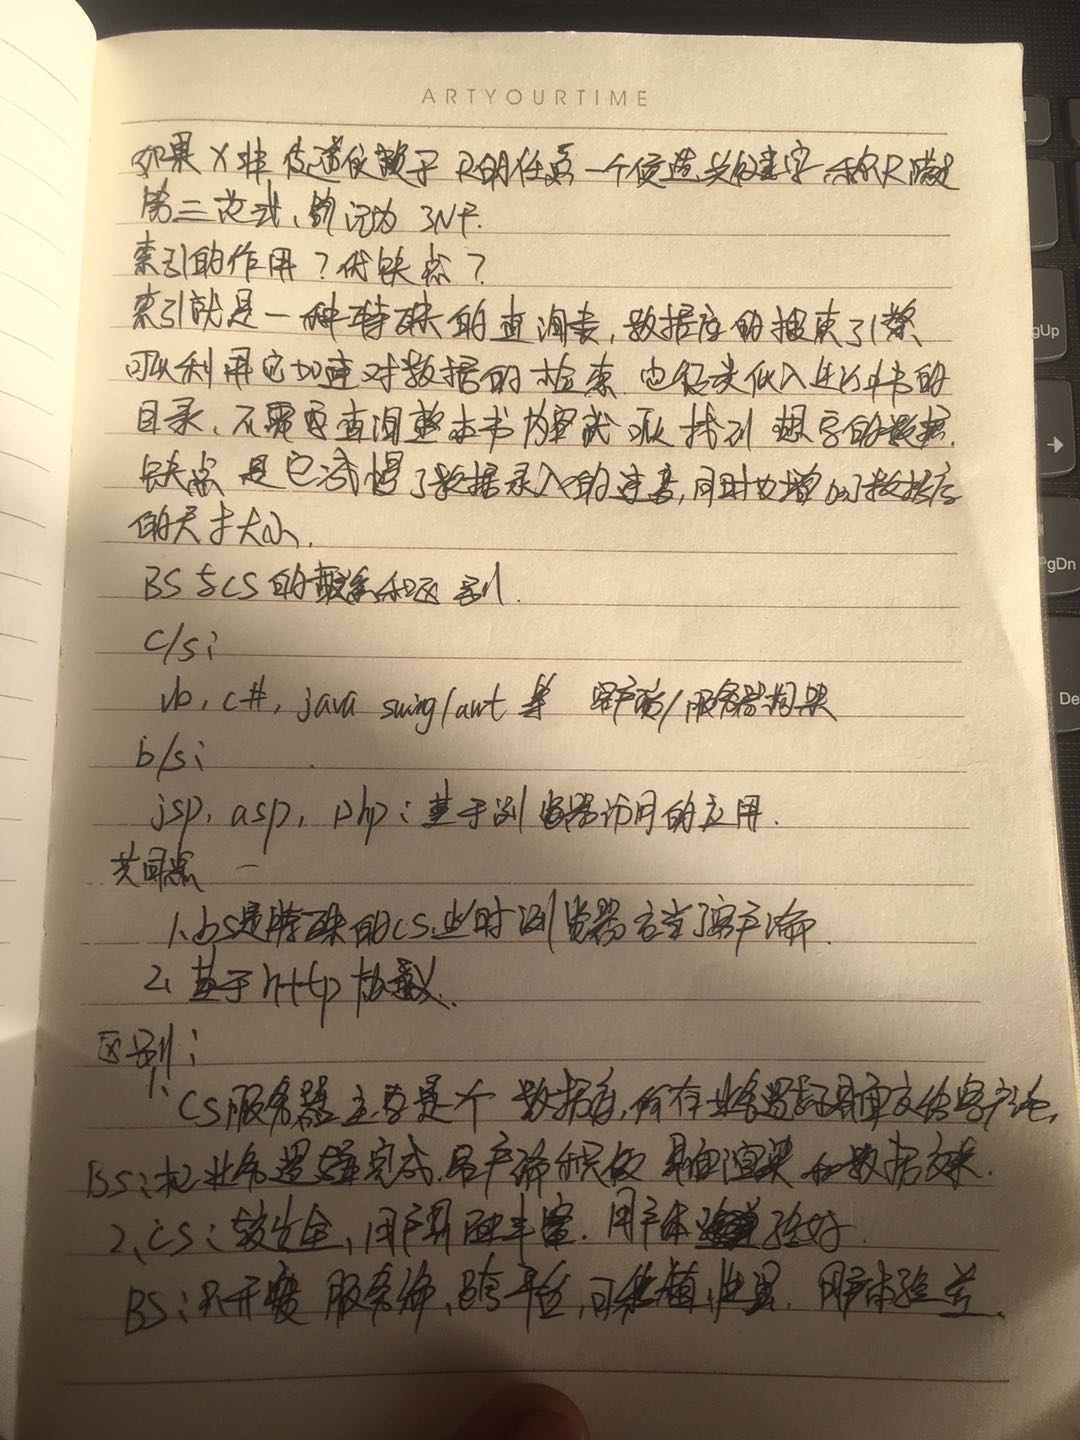 ARTYOURTIME
如果X非传递依赖于R的任意一个候选关键字 称R满足
第三范式,所记为 3NF.
索引的作用?优缺点?
索引就是一种特殊的查询表,数据库的搜索引擎
可以利用它加速对数据的检索.也很类似入生活中书的
目录,不需要查询整本书内容就可以找到想字的数据.
缺点是它减慢了数据录入的速度,同时也增加了数据库
的尺寸大小.
BS与CS的联系和区别.
c/s:
vb, c#, java swing/awt 等 客户端/服务器框架
b/s:
jsp, asp, php: 基于浏览器访问的应用.
共同点
1、bs是特殊的CS,此时浏览器充当了客户端.
2、基于http协议.
区别:
1、CS服务器主要是个数据库,所有业务逻辑界面交给客户端.
BS:把业务逻辑完成,客户端积仅界面渲染和数据交来.
2、CS:较安全、用户界面丰富.用户体验好.
BS:只开发服务端,跨平台,可 用户体验差.